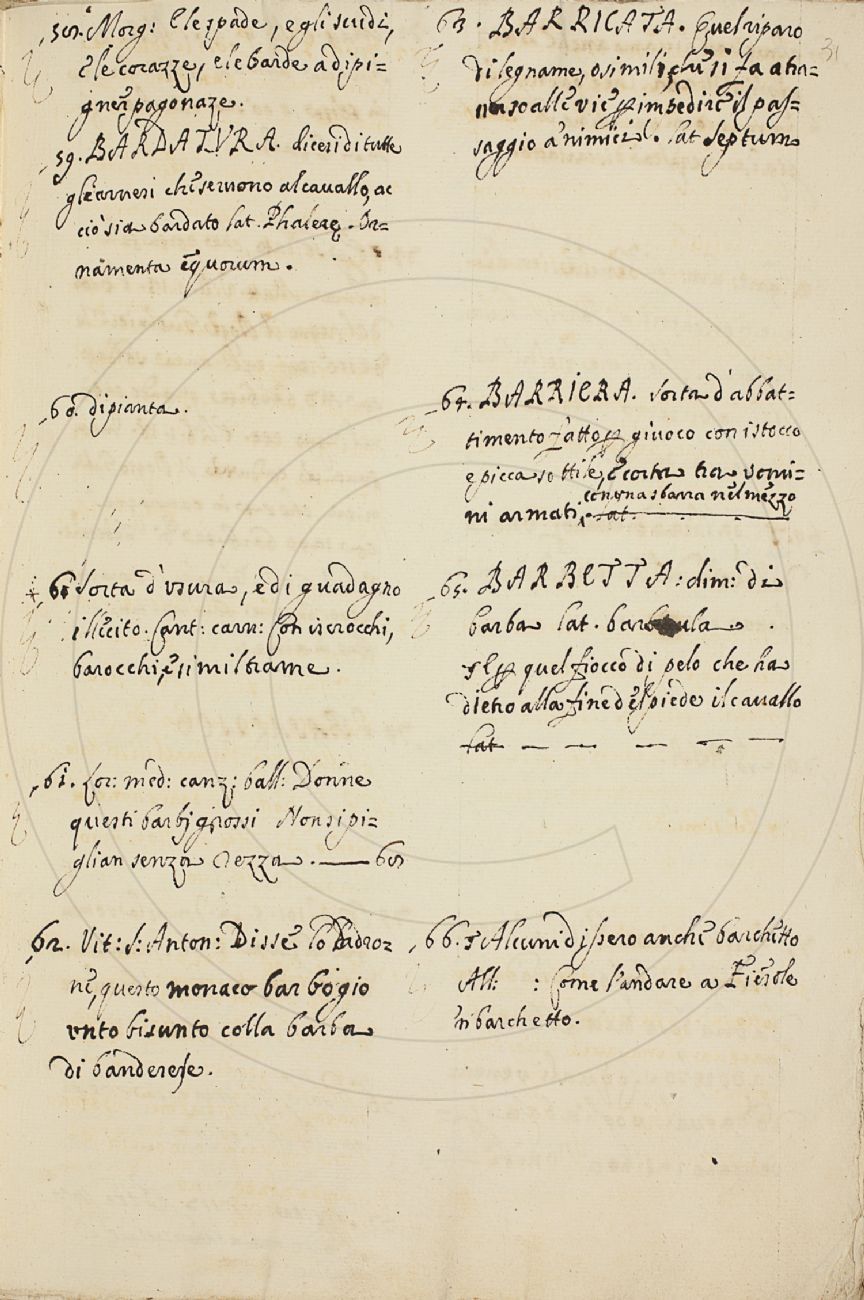 58. Morg: E le spade, e gli scudi,
E le corazze, e le barde a dipi=
gner pagonaze.
59. BARDATURA. dicesi di tutte
gl'arnesi che servono al cavallo, ac
ciò sia bardato lat. Phalerę. Or=
namenta equorum.
60. di pianta.
Sorta d'usura, e di guadagno
illecito. Cant: carn: Con scrocchi,
barocchi, e simil trame.
61. Lor: med: canz: ball: Donne
questi barbi grossi Non si pi=
glian senza rezza.
62. Vit: S: Anton: Disse lo Padro=
ne, questo monaco barbogio
unto bisunto colla barba
di banderese.
31
63. BARRICATA. Quel riparo
di legname, o simili, che si fa attra=
verso alle vie per impedire il pas=
saggio a' nimici. lat. septum
64. BARRIERA. Sorta d'abbat=
timento fatto per giuoco con istocco
e picca sottile, e corta tra uomi=
con una sbarra nel mezzo
ni armati. lat.
65. BARBETTA: dim: di
barba lat. barbula.
per quel fiocco di pelo che ha
dietro alla fine del piede il cavallo
lat
66. Alcuni dissero anche barchetto
All: : Come l'andare a Fiesole
'n barchetto.